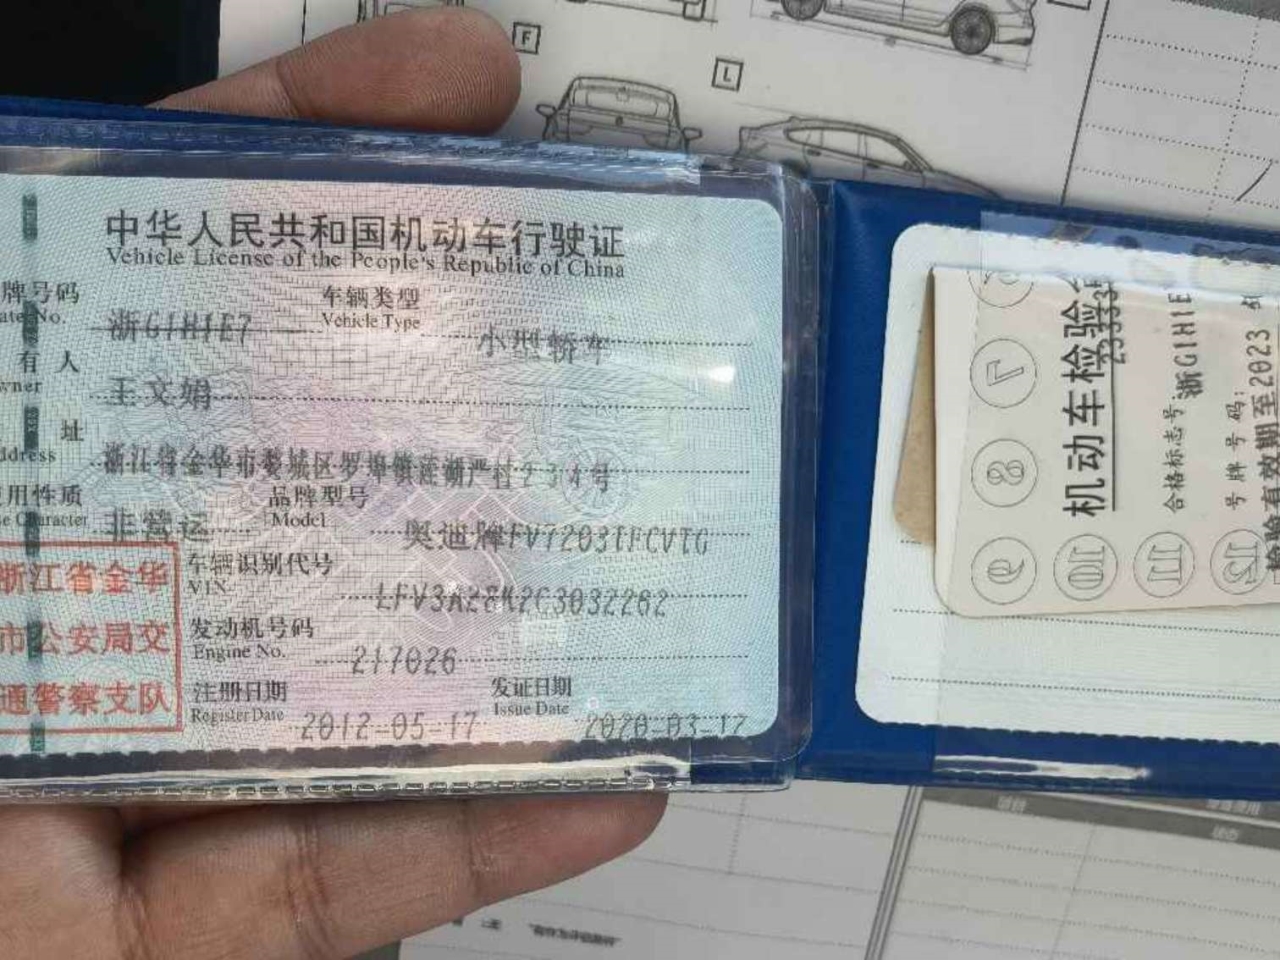 F
L
中华人民共和国机动车行驶证
Vehicle License of the People's Republic of China
牌号码
车辆类型
ate No.
浙G1H1E7
Vehicle Type
小型轿车
有 人
wner
王文娟
址
ddress
浙江省金华市婺城区罗埠镇莲湖严村234号
用性质
品牌型号
se Character
非营运
Model
奥迪牌FV7203TFCVTG
浙江省金华
市公安局交
通警察支队
车辆识别代号
VIN
LFV3A28K2C3032262
发动机号码
Engine No.
217026
注册日期
发证日期
Register Date
2012-05-17
Issue Date
2020-03-17
机动车检验
合格标志号:
浙G1H1E
号牌号码:
检验有效期至2023
7
8
9
10
11
12